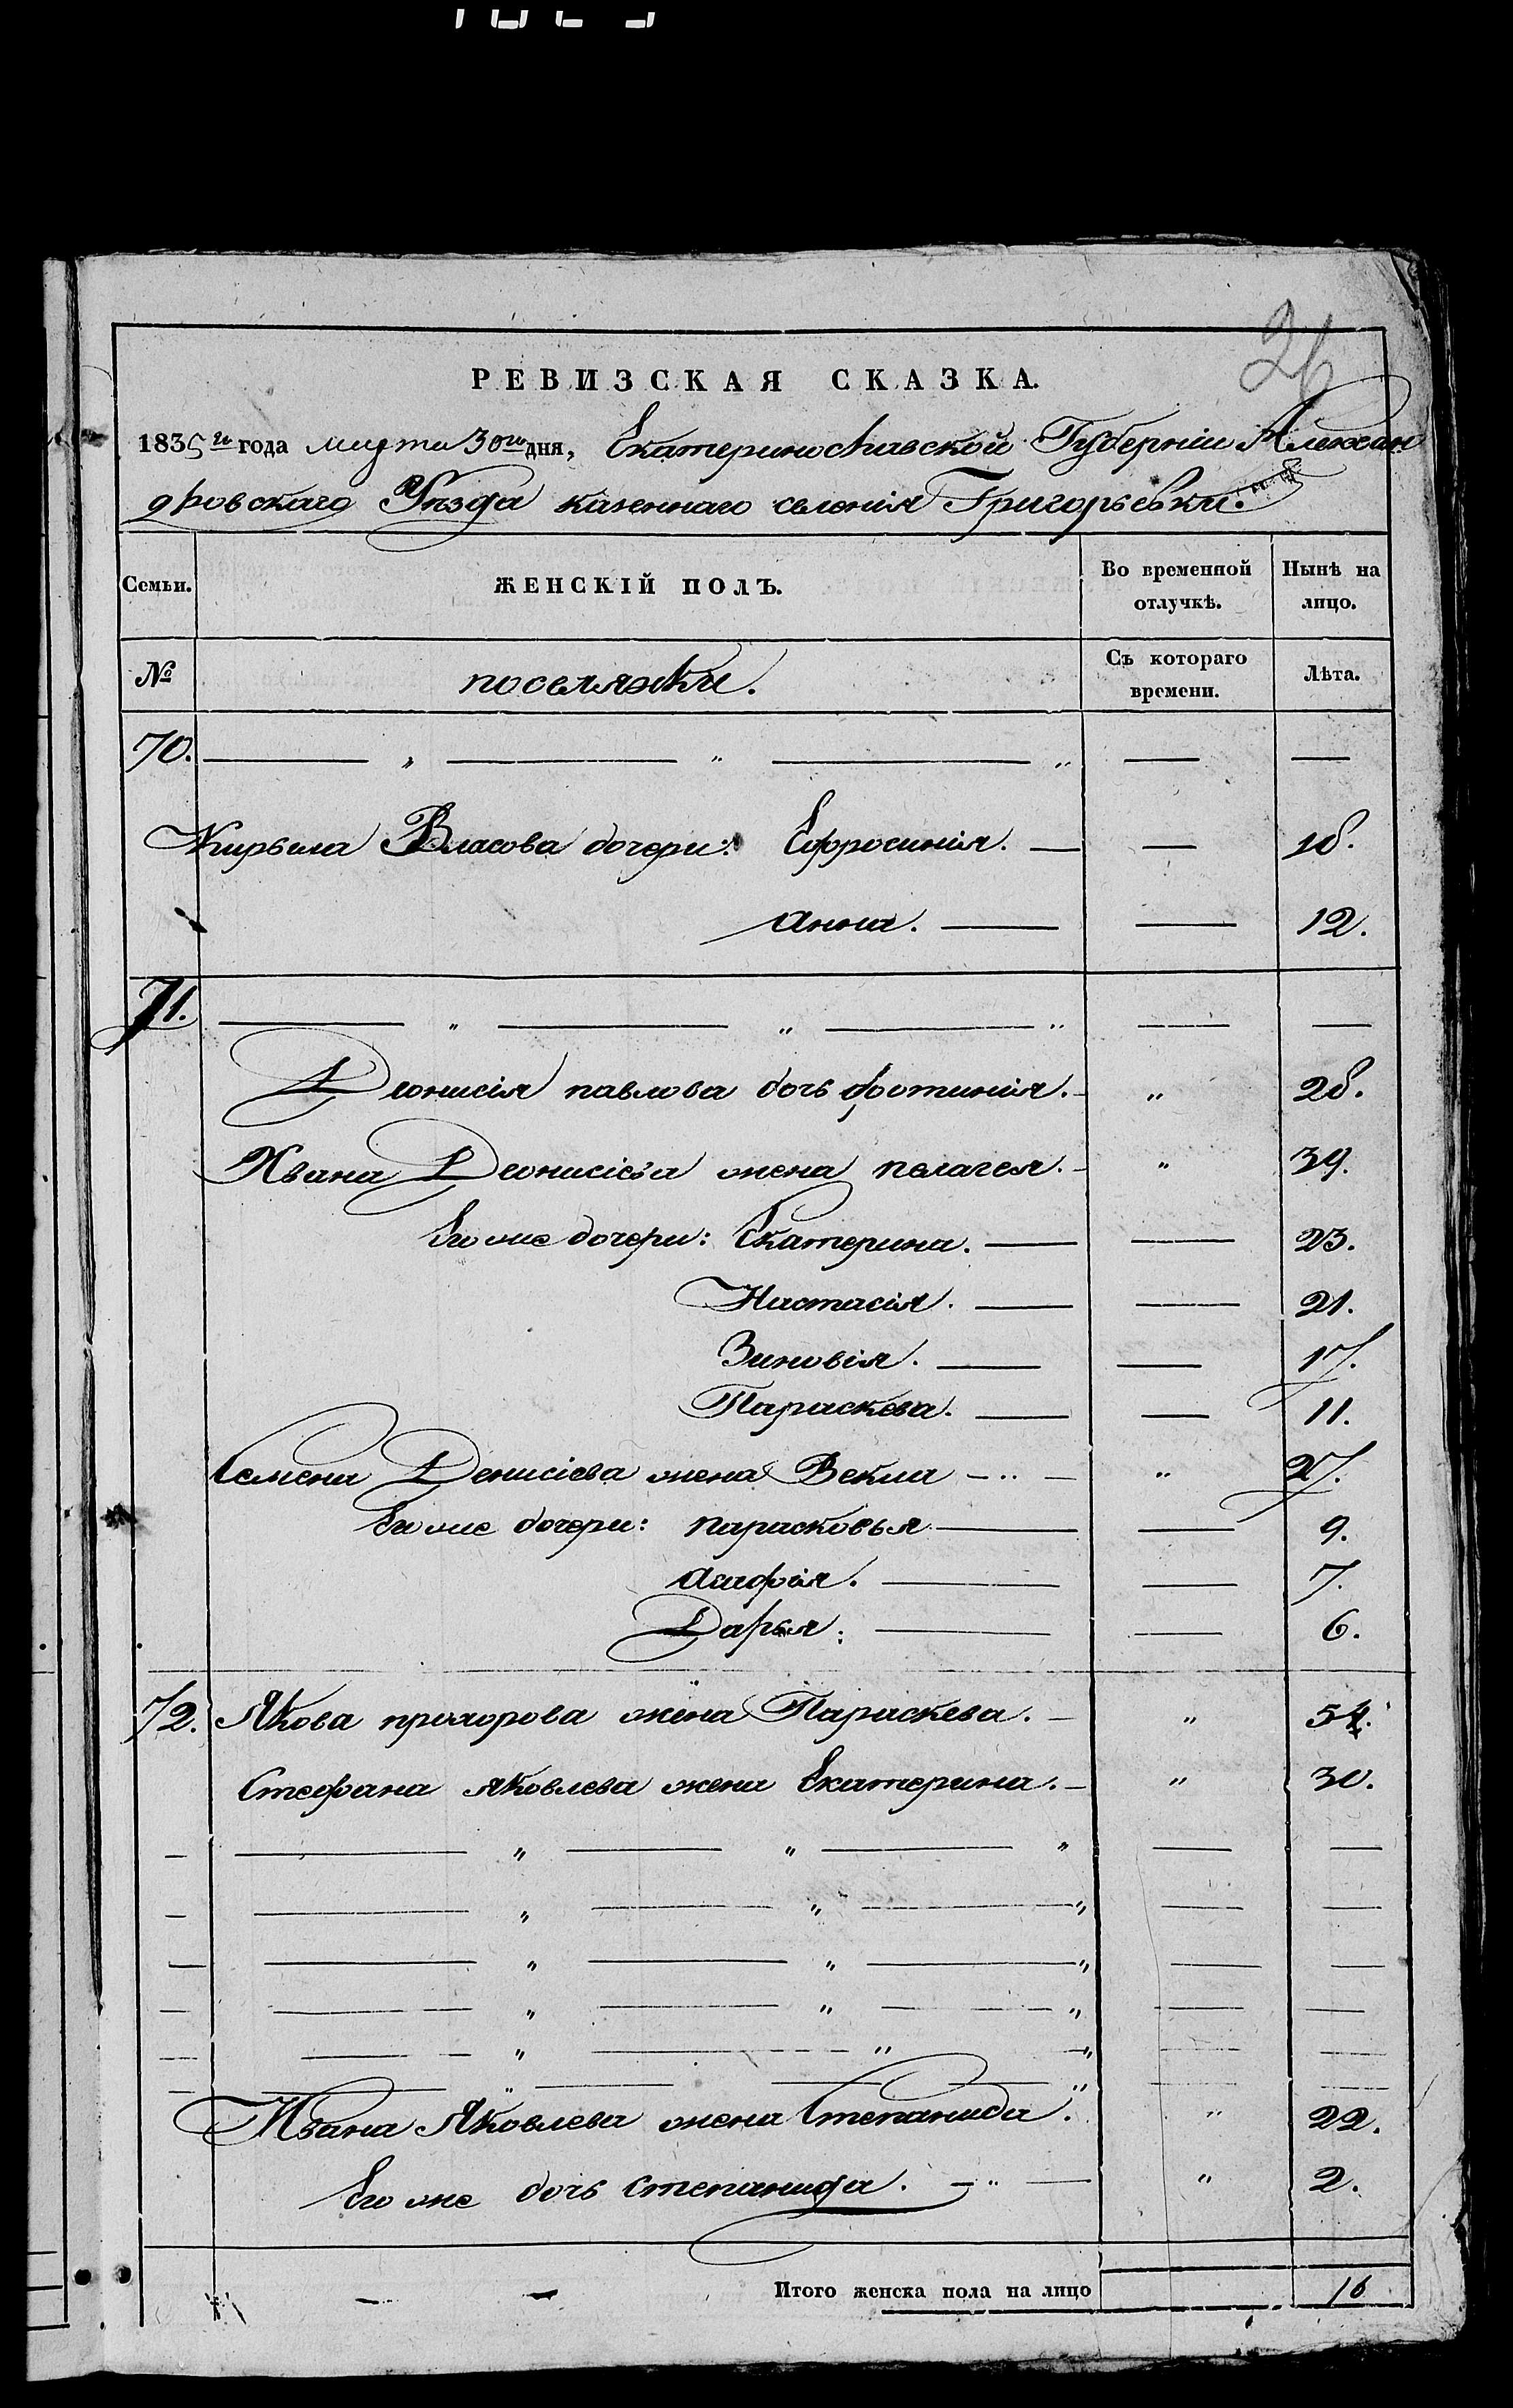 26
РЕВИЗСКАЯ СКАЗКА.
1835го года марта 30го дня, Екатеринославской Губерніи Алексан
дровскаго Уѣзда казеннаго селенія Григорьевки.
Семьи. ЖЕНСКІЙ ПОЛЪ. Во временной отлучкѣ. Нынѣ на лицо.
№ поселянки. Съ котораго времени. Лѣта.
70. — „ — „ — „ — —
Кирыла Власова дочери: Ефросинія. — — 18.
Анна. — — 12.
71. — „ — „ — „ — —
Деонисія павлова дочь фотинія. - „ 28.
Ивана Деонисіева жена пелагея. - „ 39.
Его же дочери: Екатерина. — — 23.
Настасія. — — 21.
Зиновія. — — 17.
Параскева. — — 11.
Семена Денисіева жена Векла - „ - „ 27.
Его же дочери: парасковья — — 9.
Агафія. — — 7.
Дарья. — — 6.
72. Якова прохорова жена Параскева. - „ 54.
Стефана яковлева жена Екатерина. - „ 30.
— — „ — „ — „ — —
— — „ — „ — „ — —
— — „ — „ — „ — —
— — „ — „ — „ — —
— — „ — „ — „ — —
— — „ — — — „ — —
Ивана Яковлева жена Степанида. „ 22.
Его же дочь Степанида. - „ — „ 2.
Итого женска пола на лицо 16